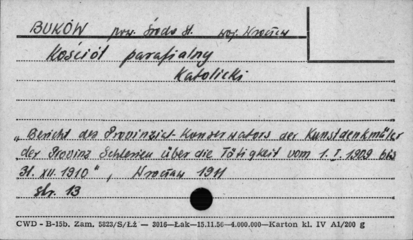 BUKÓW pow. Środa Śl. woj. Wrocław
Kościół parafialny
Katolicki
„Bericht des Provinzial-Konservators der Kunstdenkmäler
der Provinz Schlesien über die Tätigkeit vom 1. I. 1909 bis
31. XII. 1910", Wrocław 1911
str. 13
CWD - B-15b. Zam. 5823/S/Łż — 2016—Łak—15.11.56—4.000.000—Karton kl. IV A1/200 g